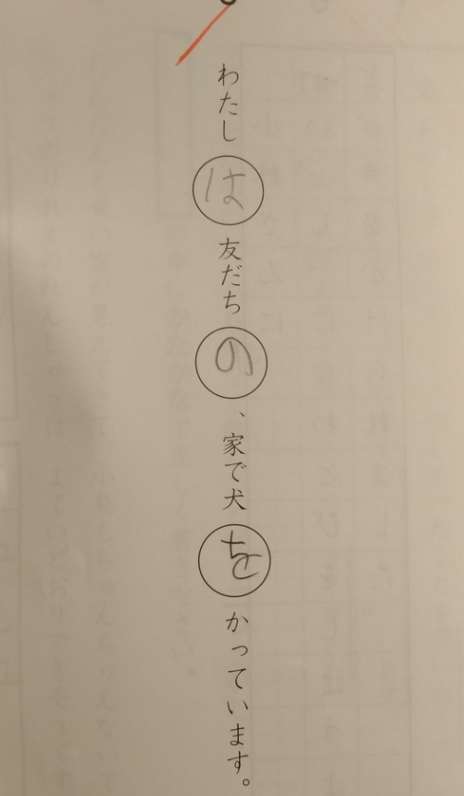 わたしは友だちの、家で犬をかっています。